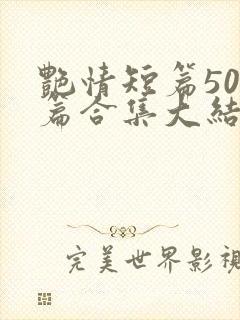 艷情短篇50
篇合集大結
完美世界影視